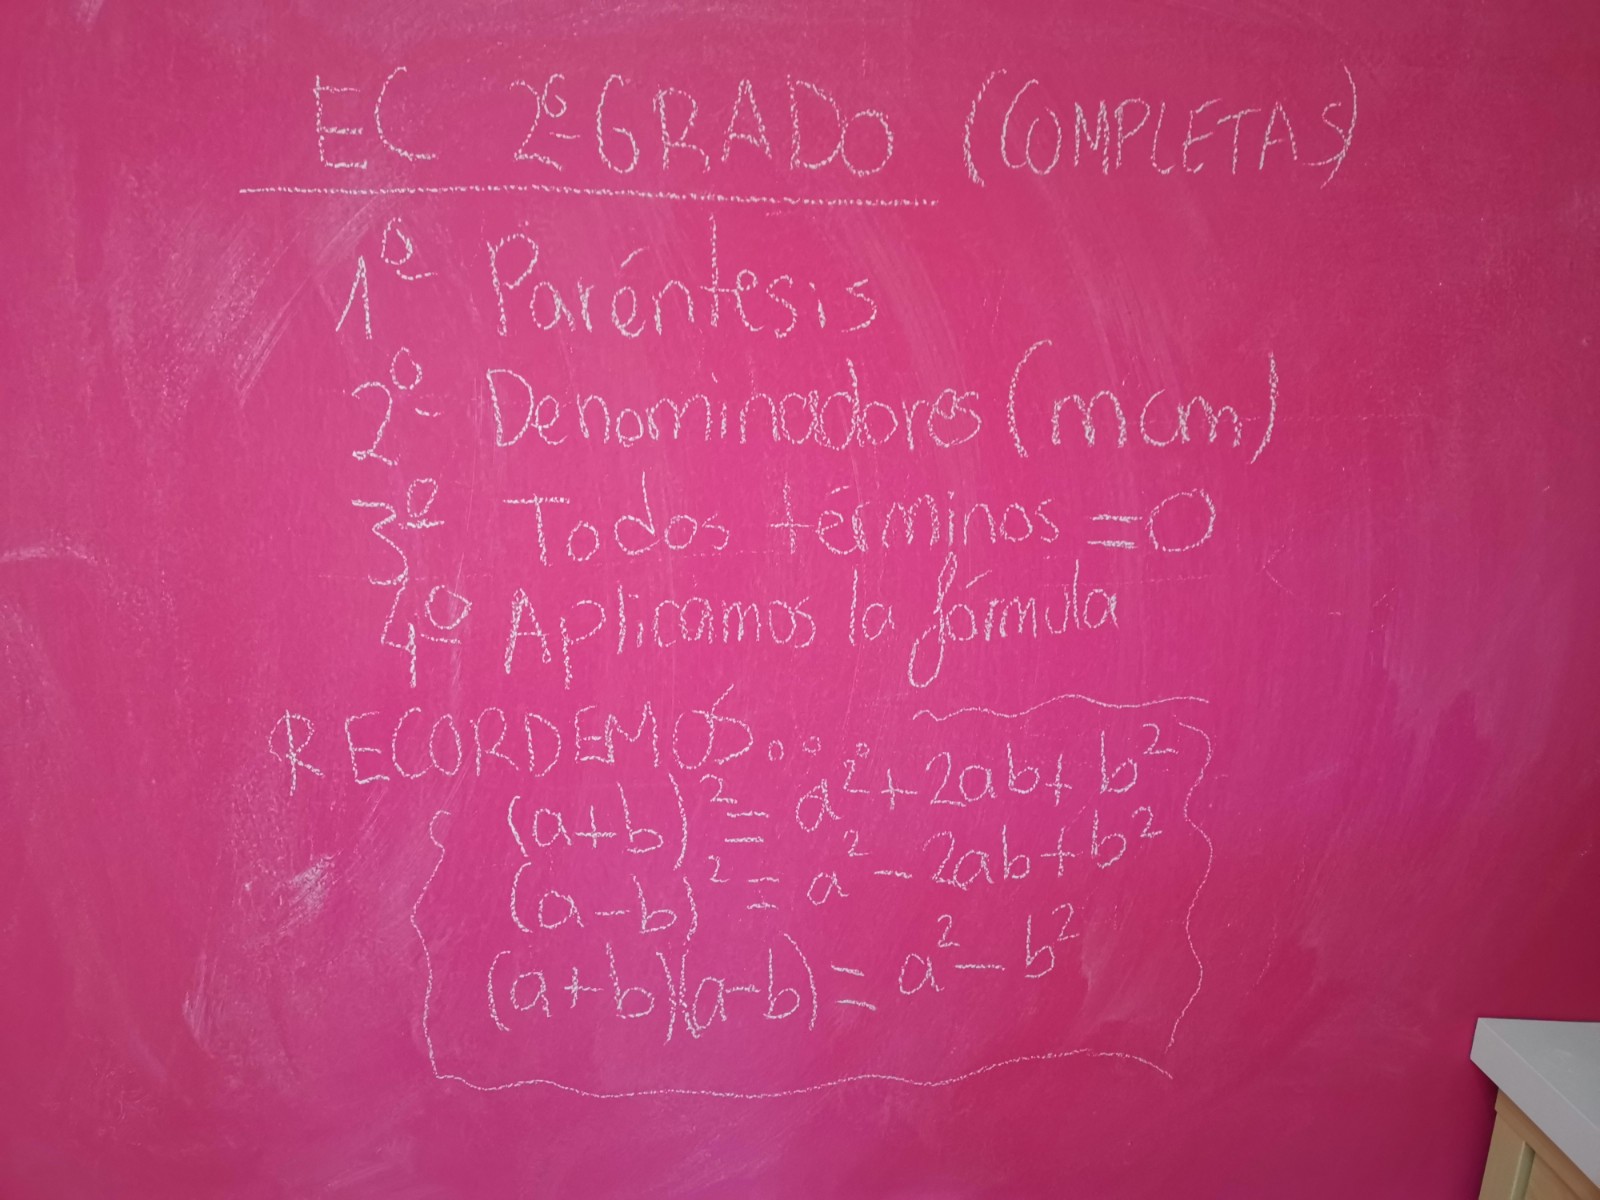 EC 2º GRADO (COMPLETAS)
1º Paréntesis
2º Denominadores (mcm)
3º Todos términos = 0
4º Aplicamos la fórmula
RECORDEMOS...
(a+b)² = a² + 2ab + b²
(a-b)² = a² - 2ab + b²
(a+b)(a-b) = a² - b²